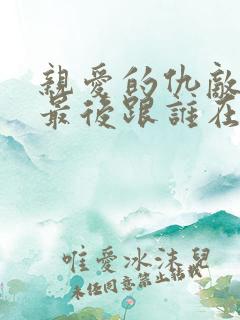 親愛的仇敵
最後跟誰在
唯愛冰沫兒
未經同意禁止轉載